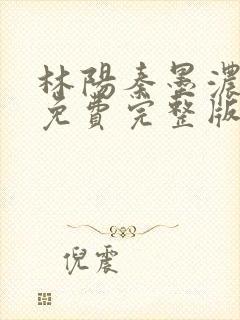 林陽秦墨濃
免費完整版
倪震